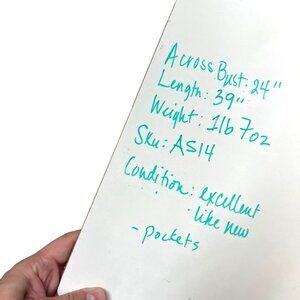 Across Bust: 24"
Length: 39"
Weight: 1lb 7oz
Sku: AS14
Condition: excellent
like new
- pockets